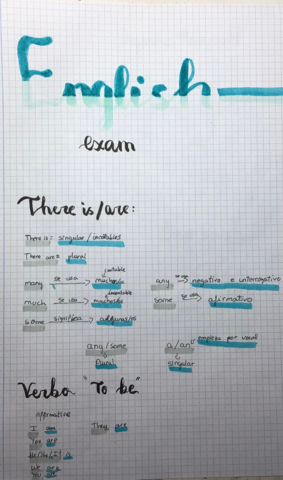 English
exam
There is/are:
There is = singular / incontables
There are = plural
contable
many se usa → muchos/as
any se usa → negativo e interrogativo
incontable
much se usa → mucho/a
some se usa → afirmativo
some significa → algunos/as
any/some
a/an empieza por vocal
Plural
singular
Verbo "To be"
afirmative
I am
They are
You are
We are
You are